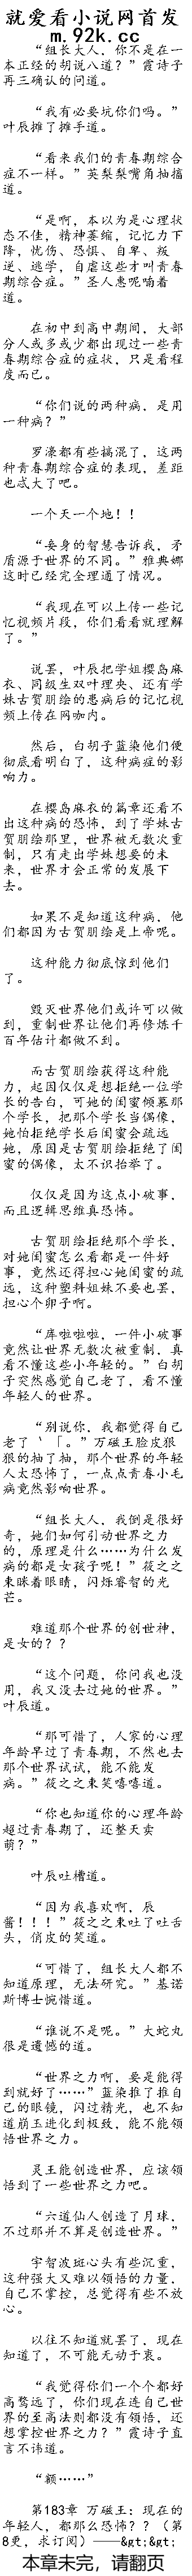 就爱看小说网首发
m.92k.cc
“组长大人，你不是在一
本正经的胡说八道？”霞诗子
再三确认的问道。
“我有必要坑你们吗。”
叶辰摊了摊手道。
“看来我们的青春期综合
症不一样。”英梨梨嘴角抽搐
道。
“是啊，本以为是心理状
态不佳，精神萎缩，记忆力下
降，忧伤、恐惧、自卑、叛
逆、逃学，自虐这些才叫青春
期综合症。”圣人惠呢喃着
道。
在初中到高中期间，大部
分人或多或少都出现过一些青
春期综合症的症状，只是看程
度而已。
“你们说的两种病，是用
一种病？”
罗濠都有些搞混了，这两
种青春期综合症的表现，差距
也忒大了吧。
一个天一个地！！
“妾身的智慧告诉我，矛
盾源于世界的不同。”雅典娜
这时已经完全理通了情况。
“我现在可以上传一些记
忆视频片段，你们看看就理解
了。”
说罢，叶辰把学姐樱岛麻
衣、同级生双叶理央、还有学
妹古贺朋绘的患病后的记忆视
频上传在网咖内。
然后，白胡子蓝染他们便
彻底看明白了，这种病症的影
响力。
在樱岛麻衣的篇章还看不
出这种病的恐怖，到了学妹古
贺朋绘那里，世界被无数次重
制，只有走出学妹想要的未
来，世界才会正常的发展下
去。
如果不是知道这种病，他
们都因为古贺朋绘是上帝呢。
这种能力彻底惊到他们
了。
毁灭世界他们或许可以做
到，重制世界让他们再修炼千
百年估计都做不到。
而古贺朋绘获得这种能
力，起因仅仅是想拒绝一位学
长的告白，可她的闺蜜倾慕那
个学长，把那个学长当偶像，
她怕拒绝学长后闺蜜会疏远
她，原因是古贺朋绘拒绝了闺
蜜的偶像，太不识抬举了。
仅仅是因为这点小破事，
而且逻辑思维真恐怖。
古贺朋绘拒绝那个学长，
对她闺蜜怎么看都是一件好
事，竟然还得担心她闺蜜的疏
远，这种塑料姐妹不要也罢，
担心个卵子啊。
“库啦啦啦，一件小破事
竟然让世界无数次被重制，真
看不懂这些小年轻的。”白胡
子突然感觉自己老了，看不懂
年轻人的世界。
“别说你，我都觉得自己
老了‵「。”万磁王脸皮狠
狠的抽了抽，那个世界的年轻
人太恐怖了，一点点青春小毛
病竟然影响世界。
“组长大人，我倒是很好
奇，她们如何引动世界之力
的，原理是什么……为什么发
病的都是女孩子呢！”筱之之
束眯着眼睛，闪烁睿智的光
芒。
难道那个世界的创世神，
是女的？？
“这个问题，你问我也没
用，我又没去过她的世界。”
叶辰道。
“那可惜了，人家的心理
年龄早过了青春期，不然也去
那个世界试试，能不能发
病。”筱之之束笑嘻嘻道。
“你也知道你的心理年龄
超过青春期了，还整天卖
萌？”
叶辰吐槽道。
“因为我喜欢啊，辰
酱！！！”筱之之束吐了吐舌
头，俏皮的笑道。
“可惜了，组长大人都不
知道原理，无法研究。”基诺
斯博士惋惜道。
“谁说不是呢。”大蛇丸
很是遗憾的道。
“世界之力啊，要是能得
到就好了……”蓝染推了推自
己的眼镜，闪过精光，也不知
道崩玉进化到极致，能不能领
悟世界之力。
灵王能创造世界，应该领
悟到了一些世界之力吧。
“六道仙人创造了月球，
不过那并不算是创造世界。”
宇智波斑心头有些沉重，
这种强大又难以领悟的力量，
自己不掌控，总觉得有些不放
心。
以往不知道就罢了，现在
知道了，不可能无动于衷。
“我觉得你们一个个都好
高骛远了，你们现在连自己世
界的至高法则都没有领悟，还
想掌控世界之力？”霞诗子直
言不讳道。
“额……”
第183章 万磁王：现在的
年轻人，都那么恐怖？？（第
8更，求订阅）——&gt;&gt;
本章未完，请翻页